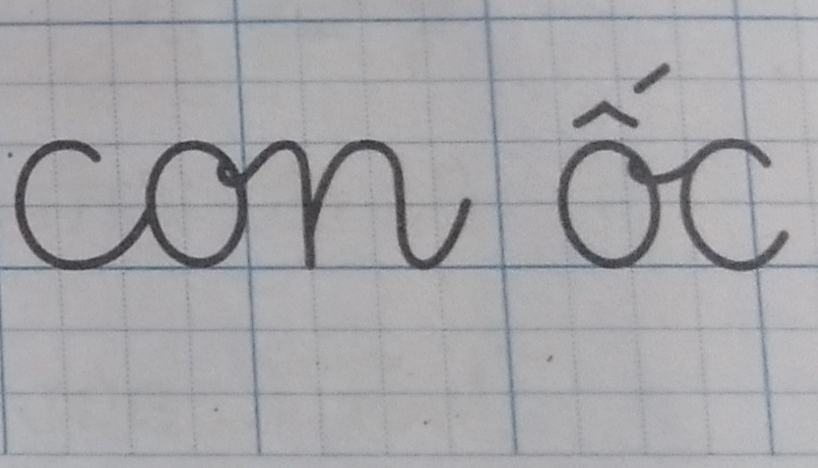 con ốc